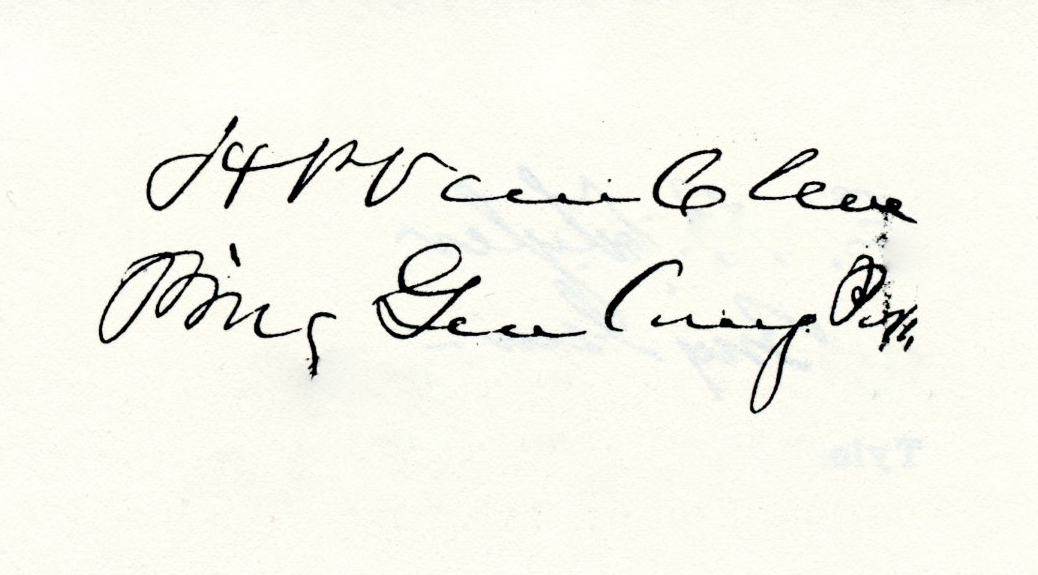 H P Van Cleve
Brig Gen Comg Post